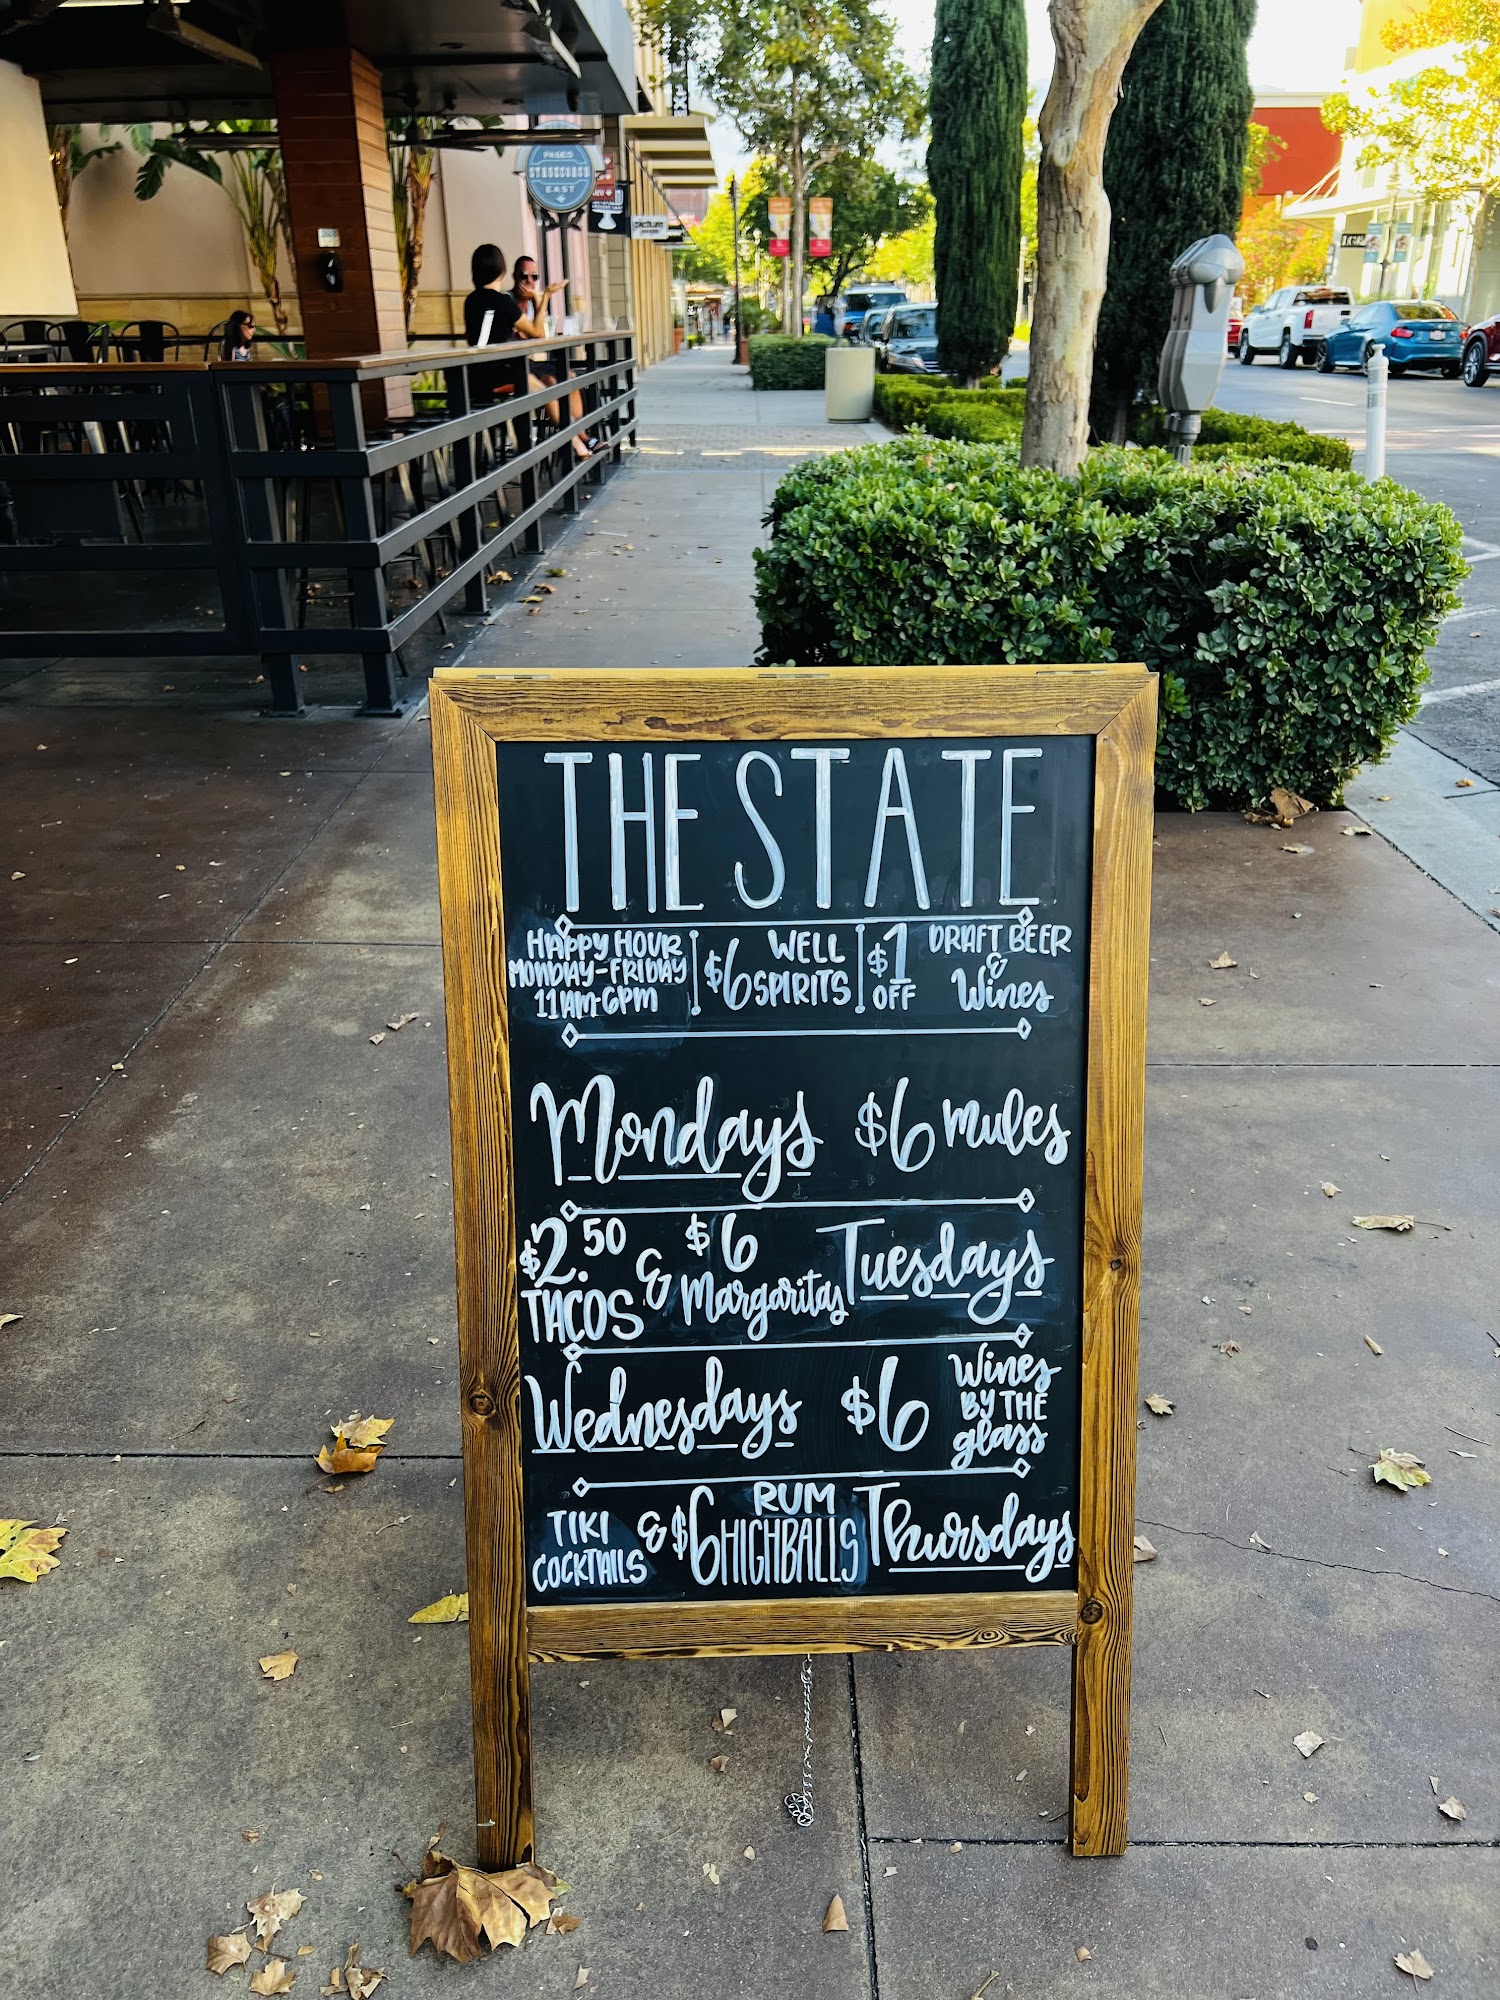 PASEO
STAGECOACH
EAST
THE STATE
HAPPY HOUR
MONDAY-FRIDAY
11AM-6PM
$6 WELL
SPIRITS
$1
OFF
DRAFT BEER
&
Wines
Mondays $6 Mules
$2.50
TACOS
& $6
Margaritas
Tuesdays
Wednesdays $6 Wines
BY THE
glass
TIKI
COCKTAILS
& $6 RUM
HIGHBALLS
Thursdays